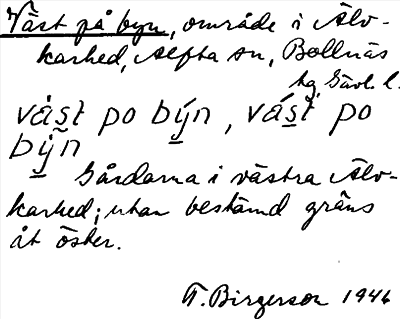 Väst på byn, område i Älv-
karhed, Alfta sn, Bollnäs
tg, Gävl. l.
vás̱t po bý̱n, vás̱t po
bý̱n
Gårdarna i västra Älv-
karhed; utan bestämd gräns
åt öster.
T. Birgerson 1946